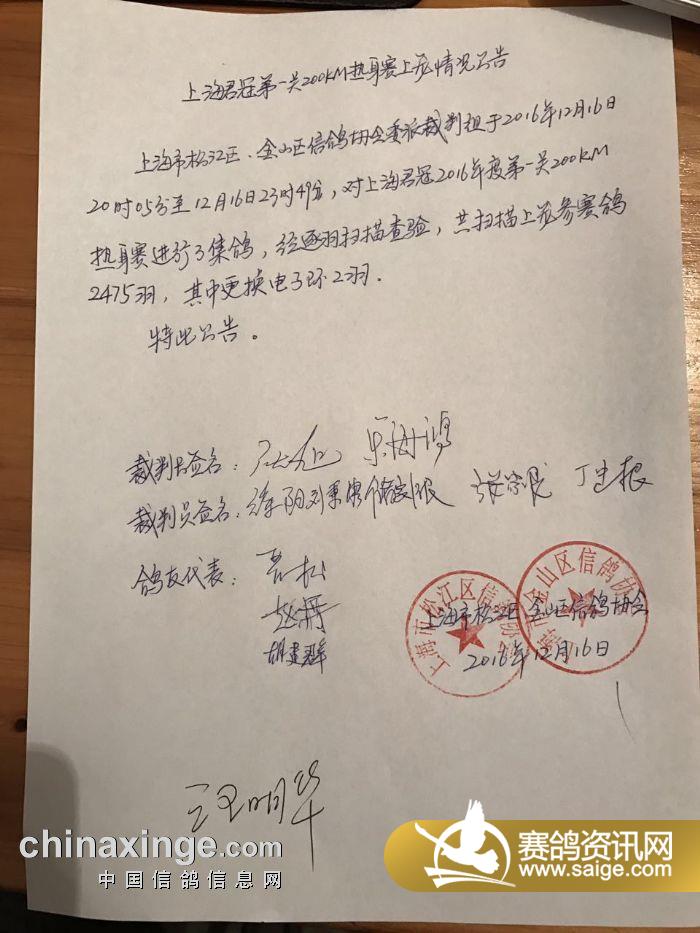 上海君冠第一关200KM热身赛上笼情况公告
上海市松江区、金山区信鸽协会委派裁判组于2016年12月16日
20时05分至12月16日23时49分，对上海君冠2016年度第一关200KM
热身赛进行了集鸽，经逐羽扫描查验，共扫描上笼参赛鸽
2475羽，其中更换电子环2羽.
特此公告。
裁判长签名：
裁判员签名：徐阳 丁建根
鸽友代表：
赵
胡建群
上海市松江区 金山区信鸽协会
2016年12月16日
上海市松江区信鸽协会
上海市金山区信鸽协会
汪明华
chinaxinge.com
中国信鸽信息网
赛鸽资讯网
www.saige.com